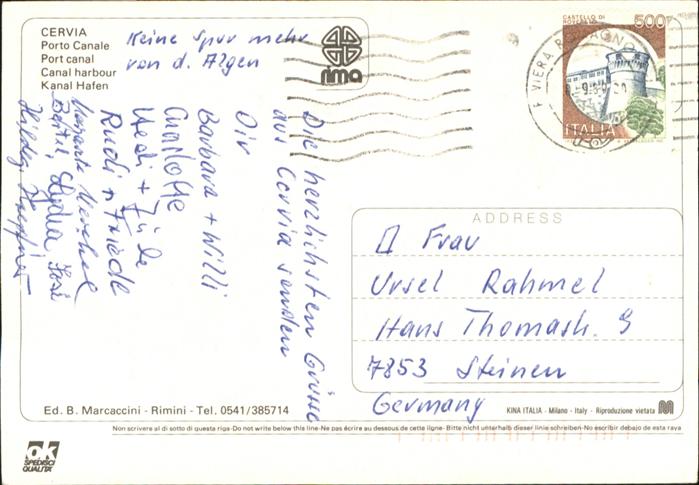 CERVIA
Porto Canale
Port canal
Canal harbour
Kanal Hafen
Keine Spur mehr
von d. Algen
rima
CASTELLO DI
ROVERETO
500
ITALIA
Die herzlichsten Grüsse
aus Cervia senden
Dir
Barbara + Willi
Charlotte
Hedi + Jule
Rudi + Friede
ADDRESS
Frau
Ursel Rahmel
Hans Thomastr. 9
7853 Steinen
Germany
Ed. B. Marcaccini - Rimini - Tel. 0541/385714
KINA ITALIA - Milano - Italy - Riproduzione vietata
Non scrivere al di sotto di questa riga-Do not write below this line-Ne pas écrire au dessous de cette ligne- Bitte nicht unterhalb dieser linie schreiben-No escribir debajo de esta raya
ok
SPEDISCI
QUALITA'